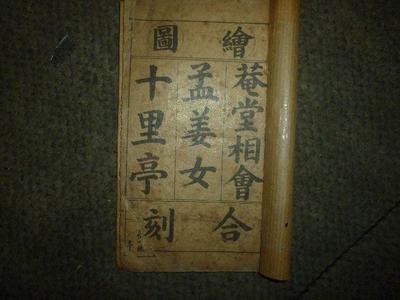 繪圖
菴堂相會
孟姜女
十里亭
合刻